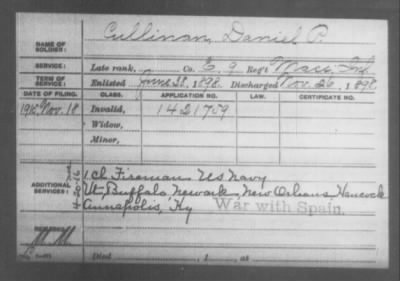 Cullinan, Daniel P.
NAME OF SOLDIER:
SERVICE: Late rank, Co. E, 9 Reg't Mass. Inf.
TERM OF SERVICE: Enlisted June 28, 1898, Discharged Nov. 26, 1898
DATE OF FILING. CLASS. APPLICATION NO. LAW. CERTIFICATE NO.
1915 Nov. 18 Invalid, 1421759
Widow,
Minor,
ADDITIONAL SERVICES: 4-20-16 1 cl Fireman US Navy
Buffalo, Newark, New Orleans, Hancock
Annapolis, Ky War with Spain.
REMARKS:
Died , 1 , at